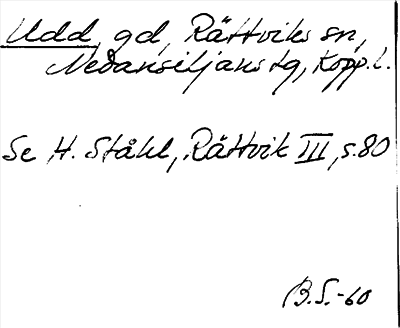 Udd, gd, Rättviks sn,
Nedansiljans tg, Kopp. l.
Se H. Ståhl, Rättvik III, s. 80
B.S. -60